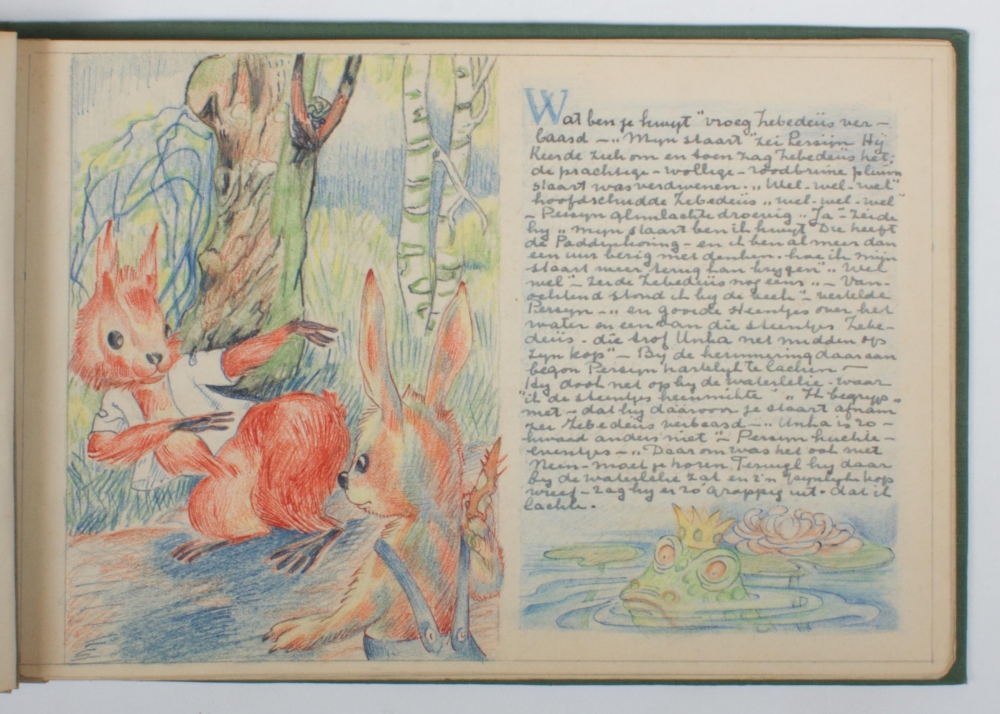 Wat ben je kwijt" vroeg Zebedeüs ver-
baasd -„ Mijn staart" zei Persijn Hij
keerde zich om en toen zag Zebedeüs het;
de prachtige - wollige - roodbruine pluim
staart was verdwenen. „ Wel-wel-wel"
hoofdschudde Zebedeüs „ wel-wel-wel"
- Persijn glimlachte droevig „ Ja" zeide
hij „ mijn staart ben ik kwijt" Die heeft
de Paddenkoning - en ik ben al meer dan
een uur bezig met denken. hoe ik mijn
staart weer terug kan krijgen". „ Wel
wel" - zeide Zebedeüs nog eens „ - Van-
ochtend stond ik bij de beek" - vertelde
Persijn -„ en gooide steentjes over het
water en een van die steentjes Zebe-
deüs. die trof Unka net midden op
zijn kop" - Bij de herinnering daaraan
begon Persijn hartelijk te lachen -
Hij dook net op bij de waterlelie - waar
ik de steentjes heenmikte" „ Ik begrijp
niet - dat hij daarvoor je staart afnam
zei Zebedeüs verbaasd -„ Unka is zo-
kwaad anders niet" - Persijn kuchte
eventjes -„ Daarom was het ook niet
Neen - moet je horen Terwijl hij daar
bij de waterlelie zat en z'n pijnlijke kop
wreef - zag hij er zo grappig uit. dat ik
lachte.